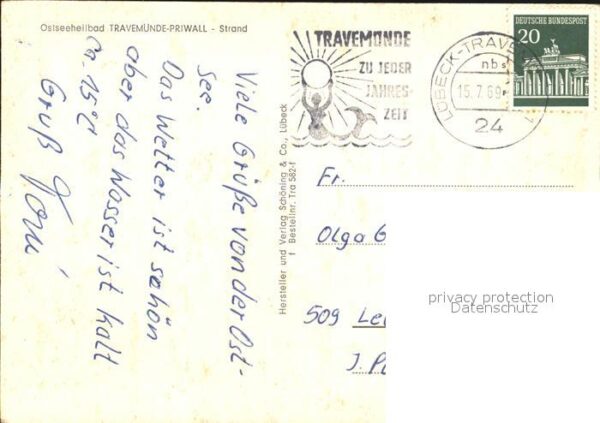 Ostseeheilbad TRAVEMÜNDE-PRIWALL - Strand
Viele Grüße von der Ost-
see.
Das Wetter ist schön
aber das Wasser ist kalt
Ca. 15°C
Gruß
Hersteller und Verlag Schöning & Co., Lübeck
† Bestellnr. Tra 582-f
TRAVEMÜNDE
ZU JEDER
JAHRES-
ZEIT
LÜBECK-TRAVE
nbs
15.7.69
24
DEUTSCHE BUNDESPOST
20
Fr.
Olga G
509 Le
J. P
privacy protection
Datenschutz